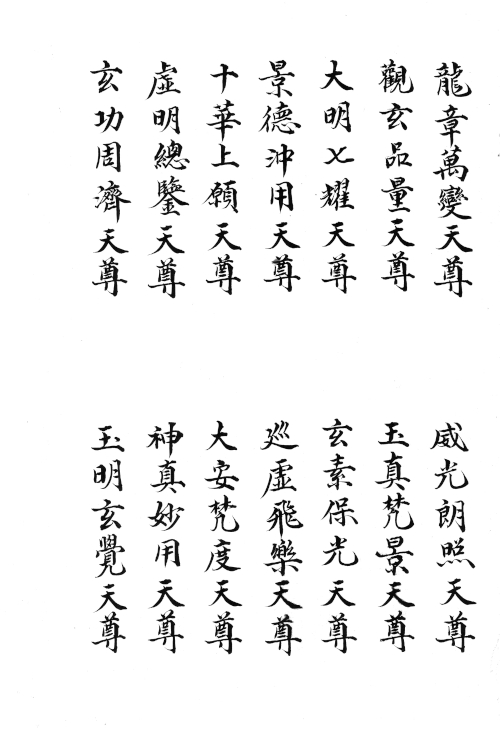 龍章萬變天尊
觀玄品量天尊
大明七耀天尊
景德沖用天尊
十華上願天尊
虛明總鑒天尊
玄功周濟天尊
威光朗照天尊
玉真梵景天尊
玄素保光天尊
巡虛飛樂天尊
大安梵度天尊
神真妙用天尊
玉明玄覺天尊